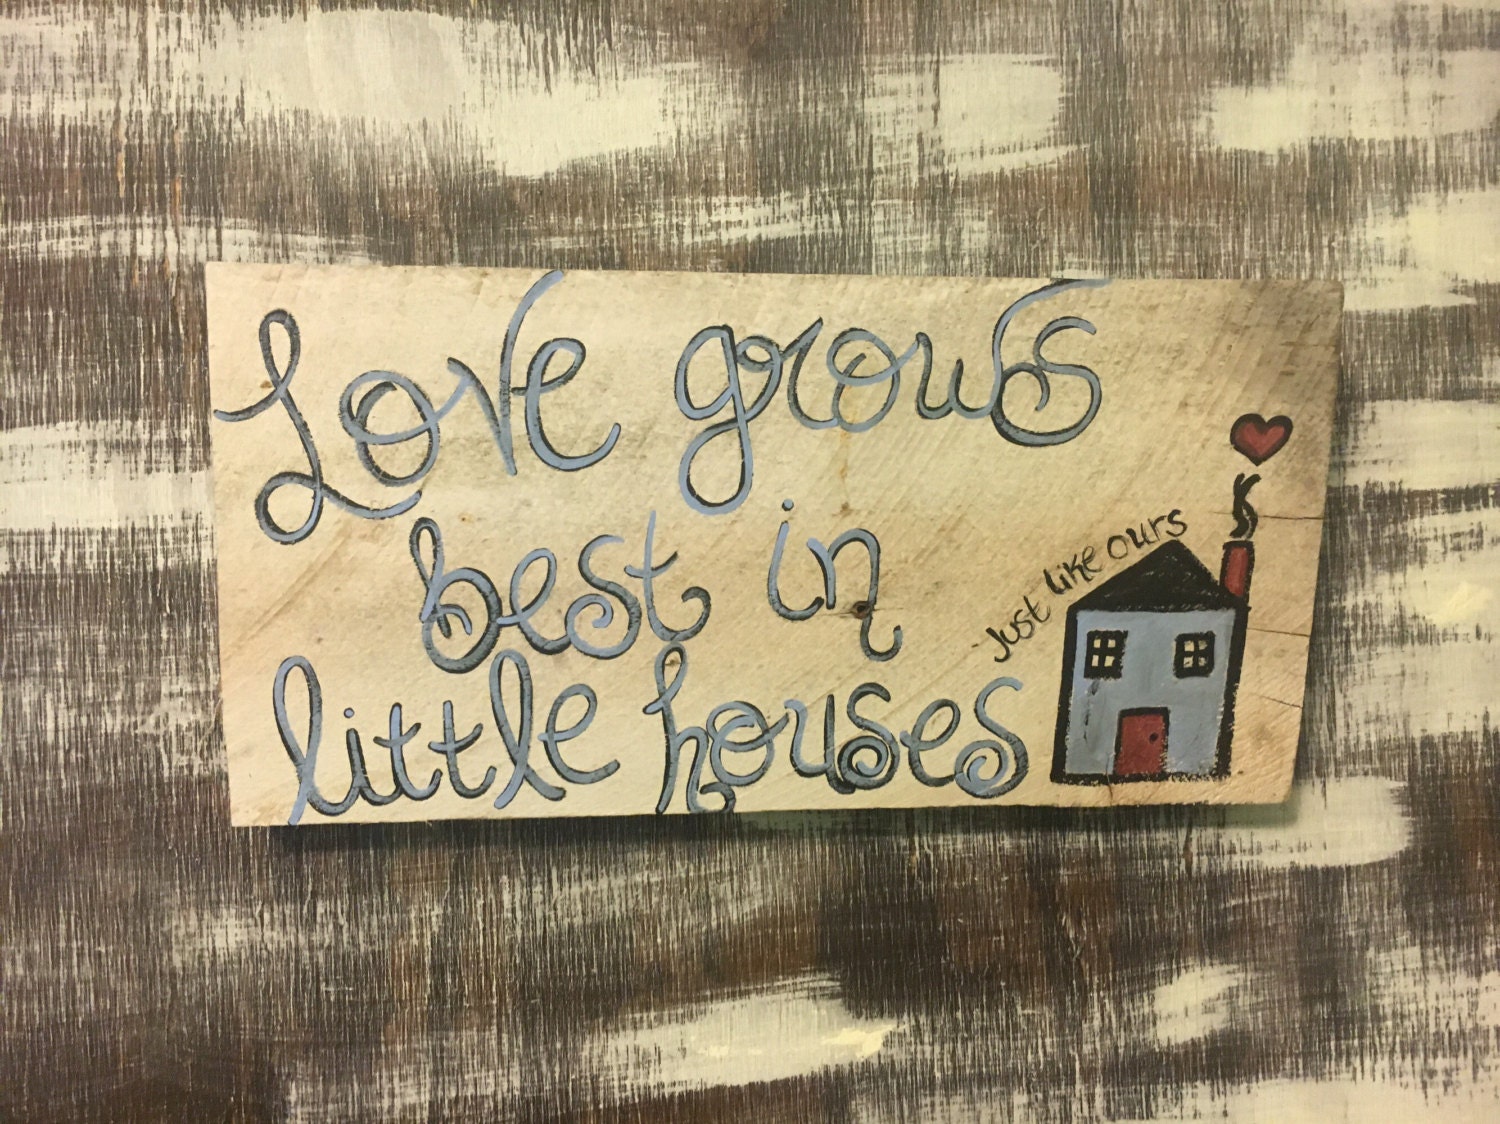 Love grows
best in
little houses
Just like ours